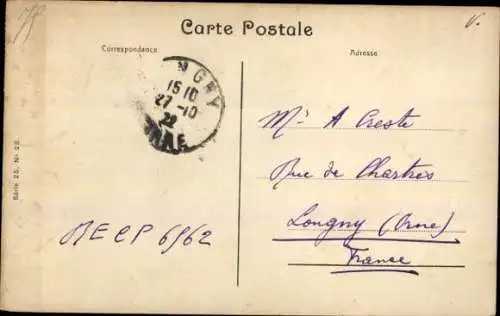 Carte Postale
Correspondance
Adresse
NGNY
15 10
27-10
22
ORNE
Mr A Creste
Rue de Chartres
Longny (Orne)
France
AECP 6962
Série 23, No 28.